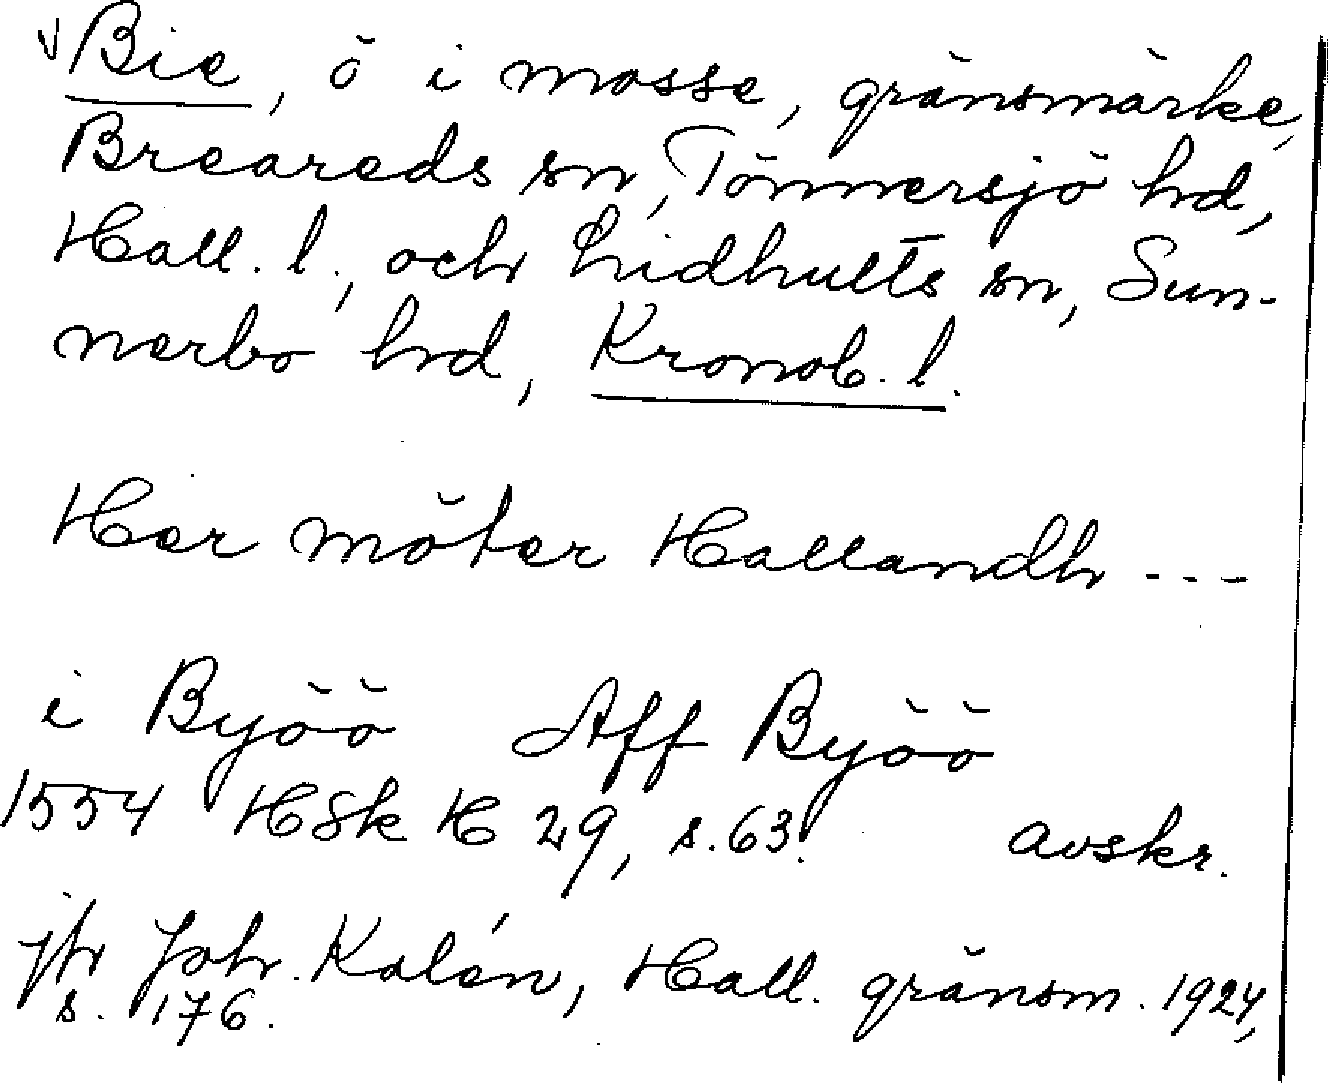 √Bie, ö i mosse, gränsmärke,
Breareds sn, Tönnersjö hd,
Hall. l., och Lidhults sn, Sun-
nerbo hd, Kronob. l.
Her möter Hallandh ---
i Byöö Aff Byöö
1554 HSk H 29, s. 63. avskr.
jfr Joh. Kalén, Hall. gränsm. 1924,
s. 176.